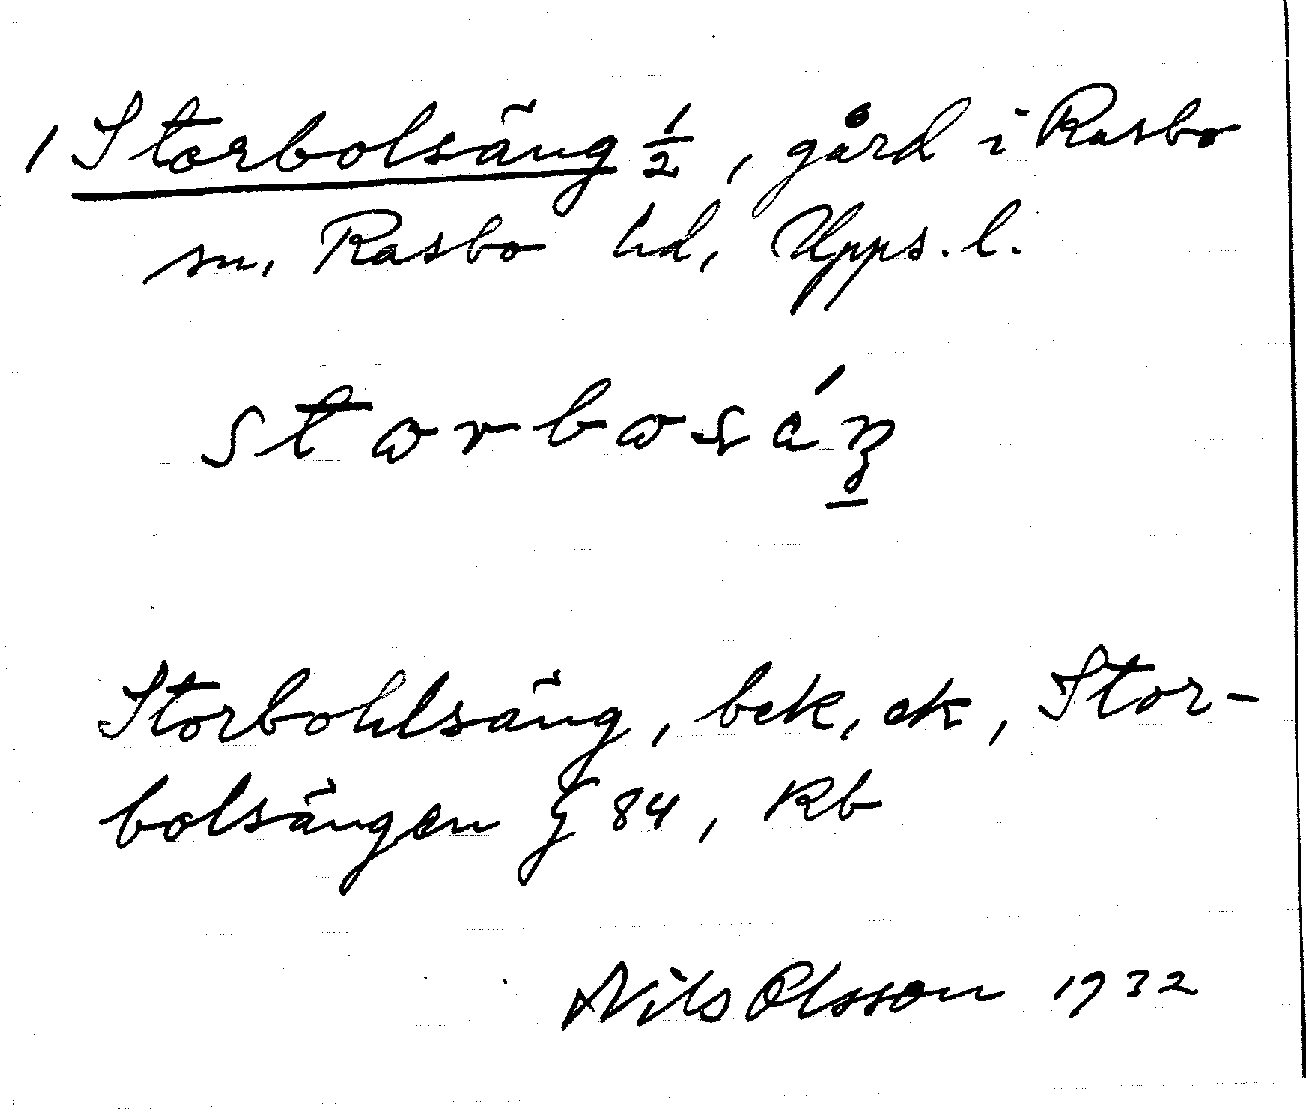 1 Storbolsäng ½, gård i Rasbo
sn, Rasbo hd, Upps. l.
storbosáŋ
Storbohlsäng, bek, ek, Stor-
bolsängen G 84, Rb
Nils Olsson 1932